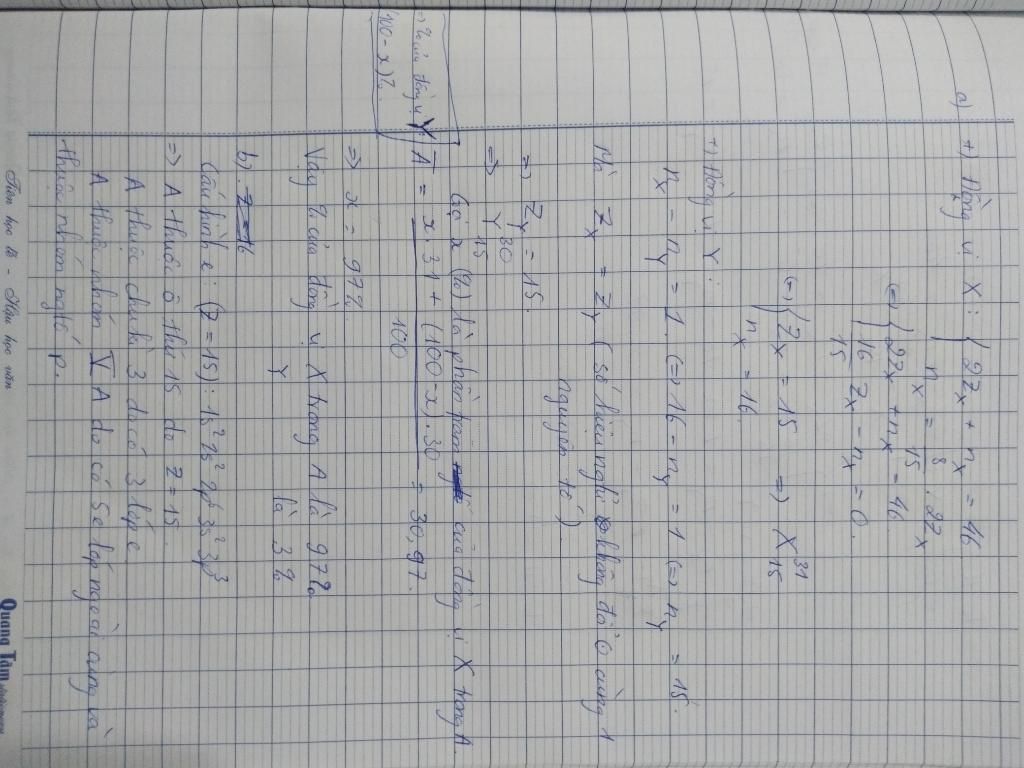 a) +) Đồng vị X: { 2Zx + nx = 46
nx = 8/15 . 2Zx
(=) { 2Zx + nx = 46
16/15 Zx - nx = 0.
(=) { Zx = 15 => X 31 15
nx = 16
+) Đồng vị Y:
nx - ny = 1. (=) 16 - ny = 1 (=) ny = 15.
Mà Zx = Zy (số hiệu nguyên tử không đổi ở cùng 1
nguyên tố)
=> Zy = 15.
=> Y 30 15
Gọi x (%) là phần trăm của đồng vị X trong A
=> % của đồng vị Y
(100 - x)%.
A = x.31 + (100-x).30 / 100 = 30,97.
=> x = 97%.
Vậy % của đồng vị X trong A là 97%
Y là 3%
b) Z=16
Cấu hình e: (Z=15): 1s² 2s² 2p⁶ 3s² 3p³
=> A thuộc ô thứ 15 do Z = 15.
A thuộc chu kì 3 do có 3 lớp e
A thuộc nhóm V A do có 5e lớp ngoài cùng và
thuộc nhóm nguyên tố p.
Tiên học lễ - Hậu học văn
Quang Tâm